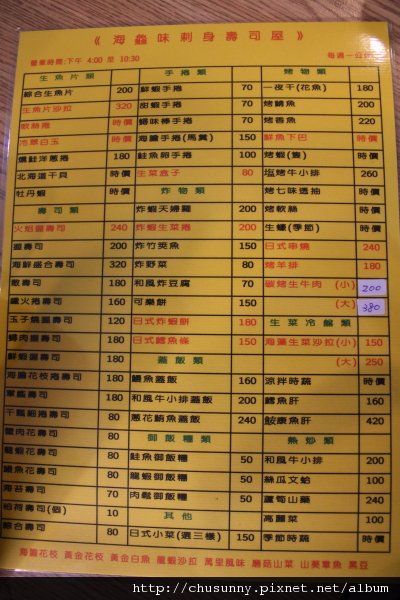 《海鱻味刺身壽司屋》
營業時間:下午 4:00 至 10:30
生魚片類
綜合生魚片 200
生魚片沙拉 320
軟絲捲 時價
冷翠白玉 時價
燻鮭洋蔥捲 180
北海道干貝 時價
牡丹蝦 時價
壽司類
火焰握壽司 240
握壽司 200
海鮮盛合壽司 320
散壽司 180
爐火捲壽司 160
玉子燒握壽司 120
鰻魚握壽司
鮮蝦握壽司 180
海膽花枝捲壽司 180
軍艦壽司 180
干瓢細捲壽司 80
蟹肉花壽司 80
龍蝦花壽司 80
鰻魚花壽司 80
海苔壽司 70
稻荷壽司(個) 10
綜合壽司 80
手捲類
鮮蝦手捲 70
甜蝦手捲 70
蟳味棒手捲 70
海膽手捲(馬糞) 150
鮭魚卵手捲 100
生菜盒子 80
炸物類
炸蝦天婦羅 200
炸蝦生菜捲 200
炸竹筴魚 150
炸野菜 80
和風炸豆腐 70
可樂餅 150
日式炸蝦餅 180
日式鱈魚條 150
蓋飯類
鰻魚蓋飯 160
和風牛小排蓋飯 200
蔥花鮪魚蓋飯 240
御飯糰類
鮭魚御飯糰 50
龍蝦御飯糰 50
肉鬆御飯糰 50
其他
日式小菜(選三樣) 150
烤物類
一夜干(花魚) 180
烤鯖魚 200
烤香魚 220
鮮魚下巴 時價
烤蝦(隻) 時價
塩烤牛小排 260
烤七味透抽 時價
烤軟絲 時價
生蠔(季節) 時價
日式串燒 240
烤羊排 180
碳烤生牛肉 (小) 200
(大) 380
生菜冷盤類
海藻生菜沙拉(小) 150
(大) 250
涼拌時蔬 時價
鱈魚肝 160
鮟康魚肝 420
熱炒類
和風牛小排 200
絲瓜文蛤 100
蘆筍山藥 240
高麗菜 100
季節時蔬 時價
海膽花枝 黃金花枝 黃金白魚 龍蝦沙拉 萬里風味 蘑菇山菜 山葵章魚 黑豆
http://chusunny.pixnet.net/album